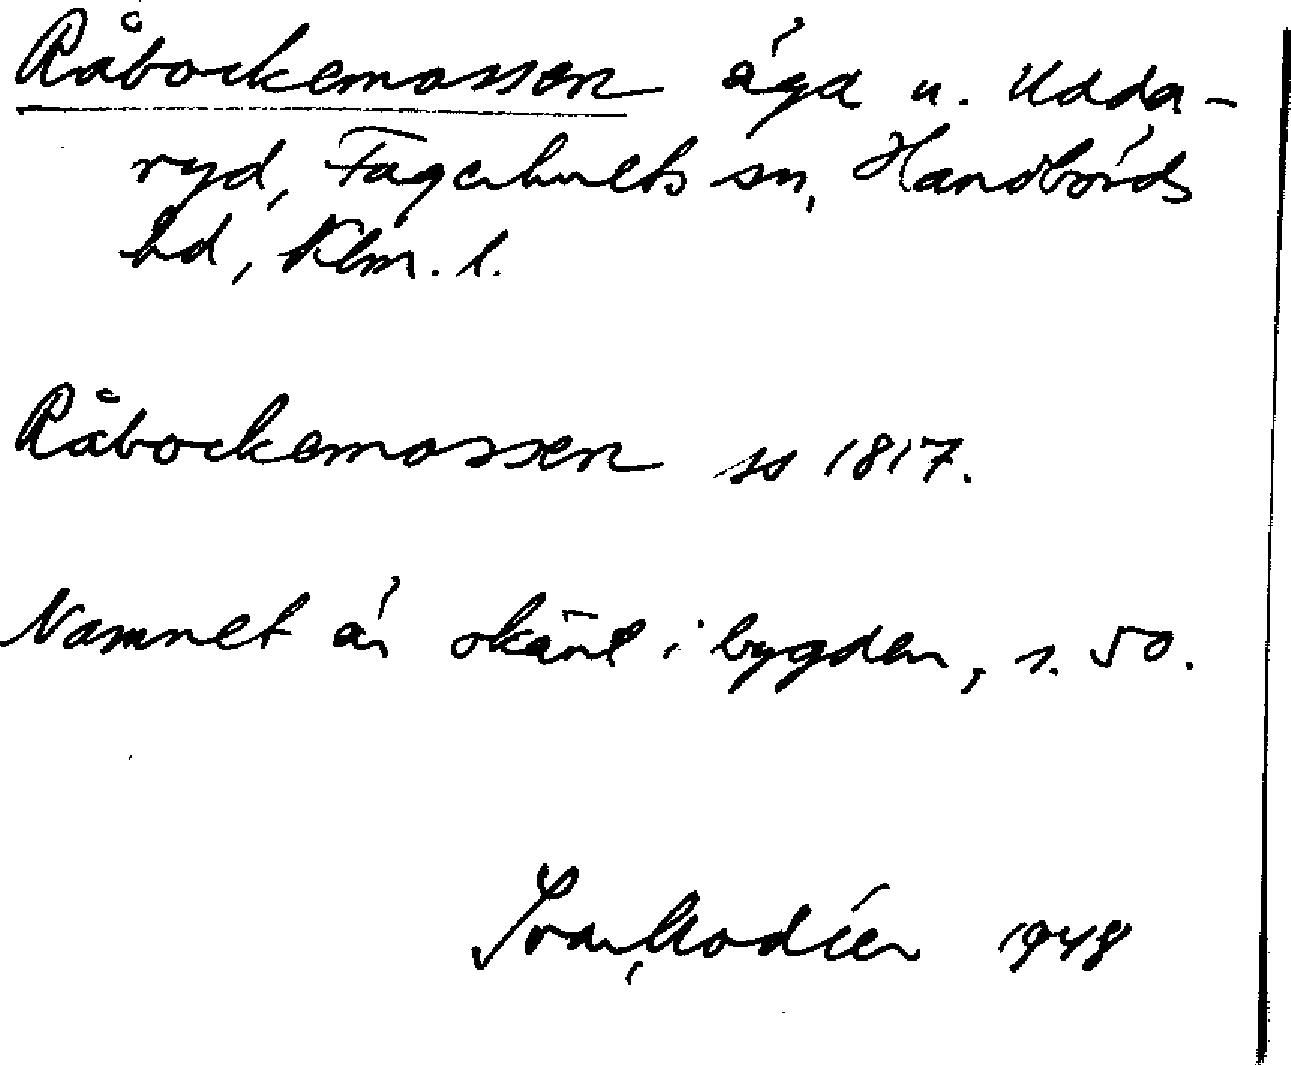 Råbockemossen äga u. Udda-
ryd, Fagerhults sn, Handbörds
hd, Klm. l.
Råbockemossen ss 1817.
Namnet är okänt i bygden, s. 50.
Ivar Modéer 1948